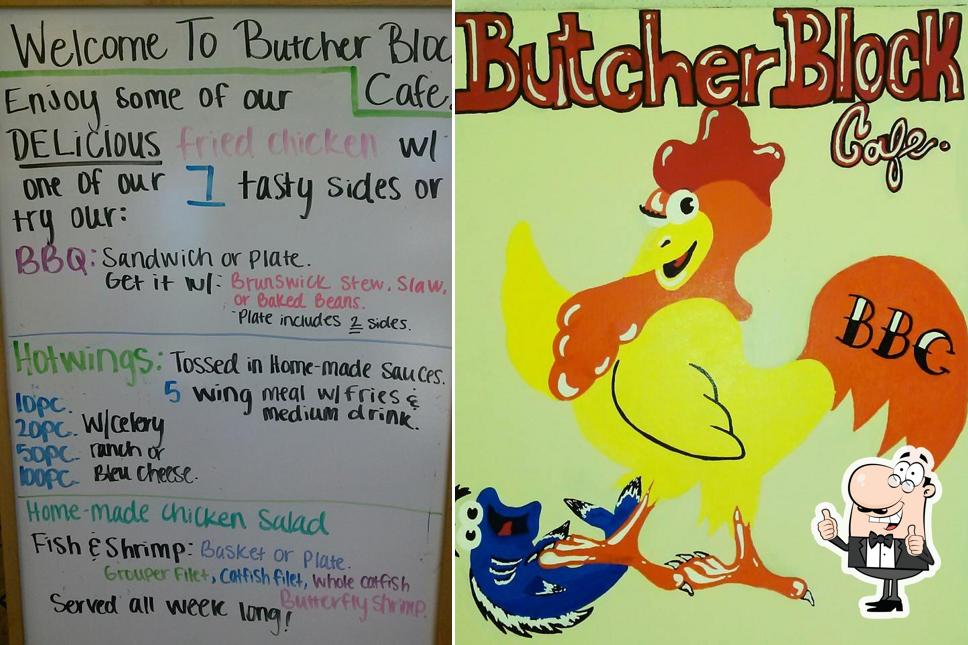 Welcome To Butcher Bloc
Cafe.
Enjoy some of our
DELICIOUS fried chicken w/
one of our 7 tasty sides or
try our:
BBQ: Sandwich or Plate.
Get it w/: Brunswick Stew, Slaw,
or Baked Beans.
Plate includes 2 sides.
Hotwings: Tossed in Home-made sauces.
5 wing meal w/fries &
medium drink.
10pc.
20pc. w/celery
50pc. ranch or
100pc. Bleu Cheese.
Home-made Chicken Salad
Fish & Shrimp: Basket or Plate.
Grouper Filet, Catfish filet, Whole catfish
Butterfly Shrimp.
Served all week long!
Butcher Block
Cafe.
BBC